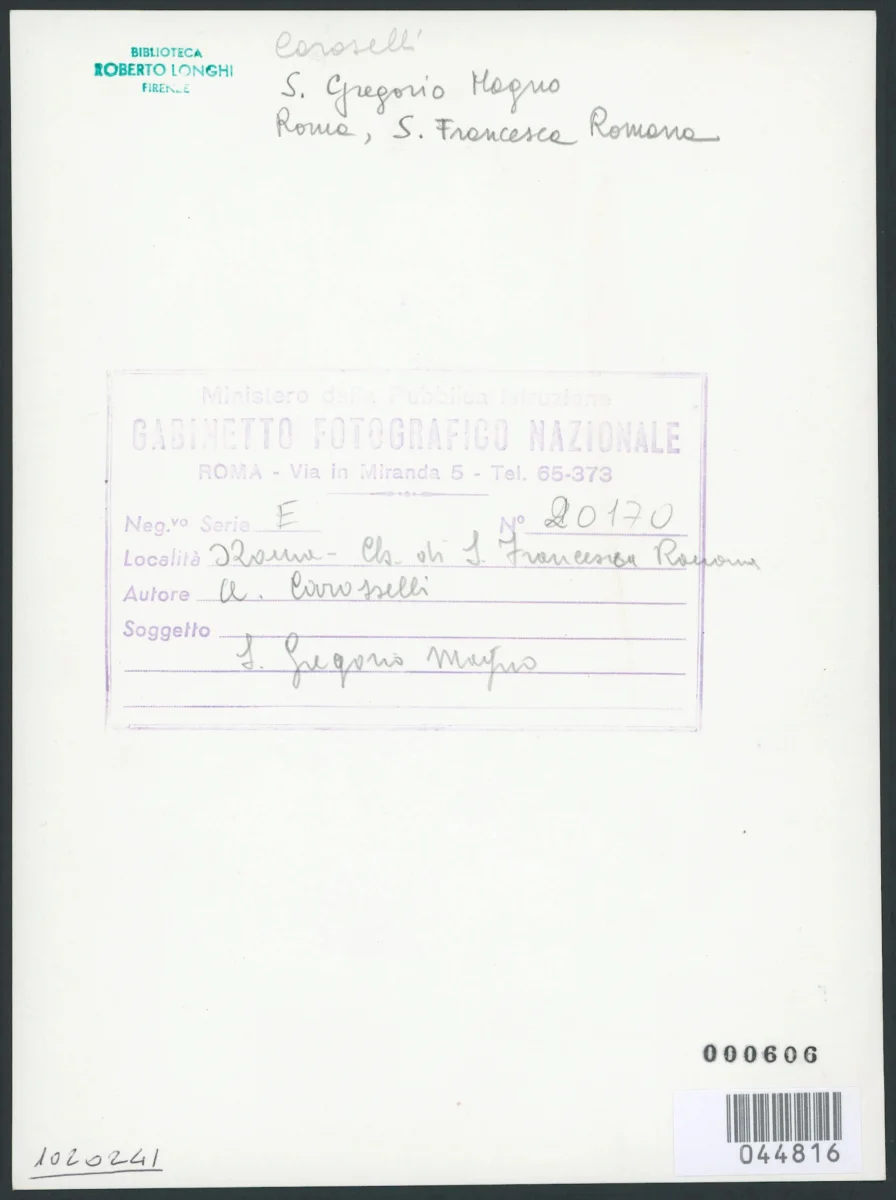 BIBLIOTECA
ROBERTO LONGHI
FIRENZE
Caroselli
S. Gregorio Magno
Roma, S. Francesca Romana
Ministero della Pubblica Istruzione
GABINETTO FOTOGRAFICO NAZIONALE
ROMA - Via in Miranda 5 - Tel. 65-373
Neg.vo Serie E N° 20170
Località Roma - Ch. di S. Francesca Romana
Autore A. Carosselli
Soggetto
S. Gregorio Magno
000606
044816
1020241